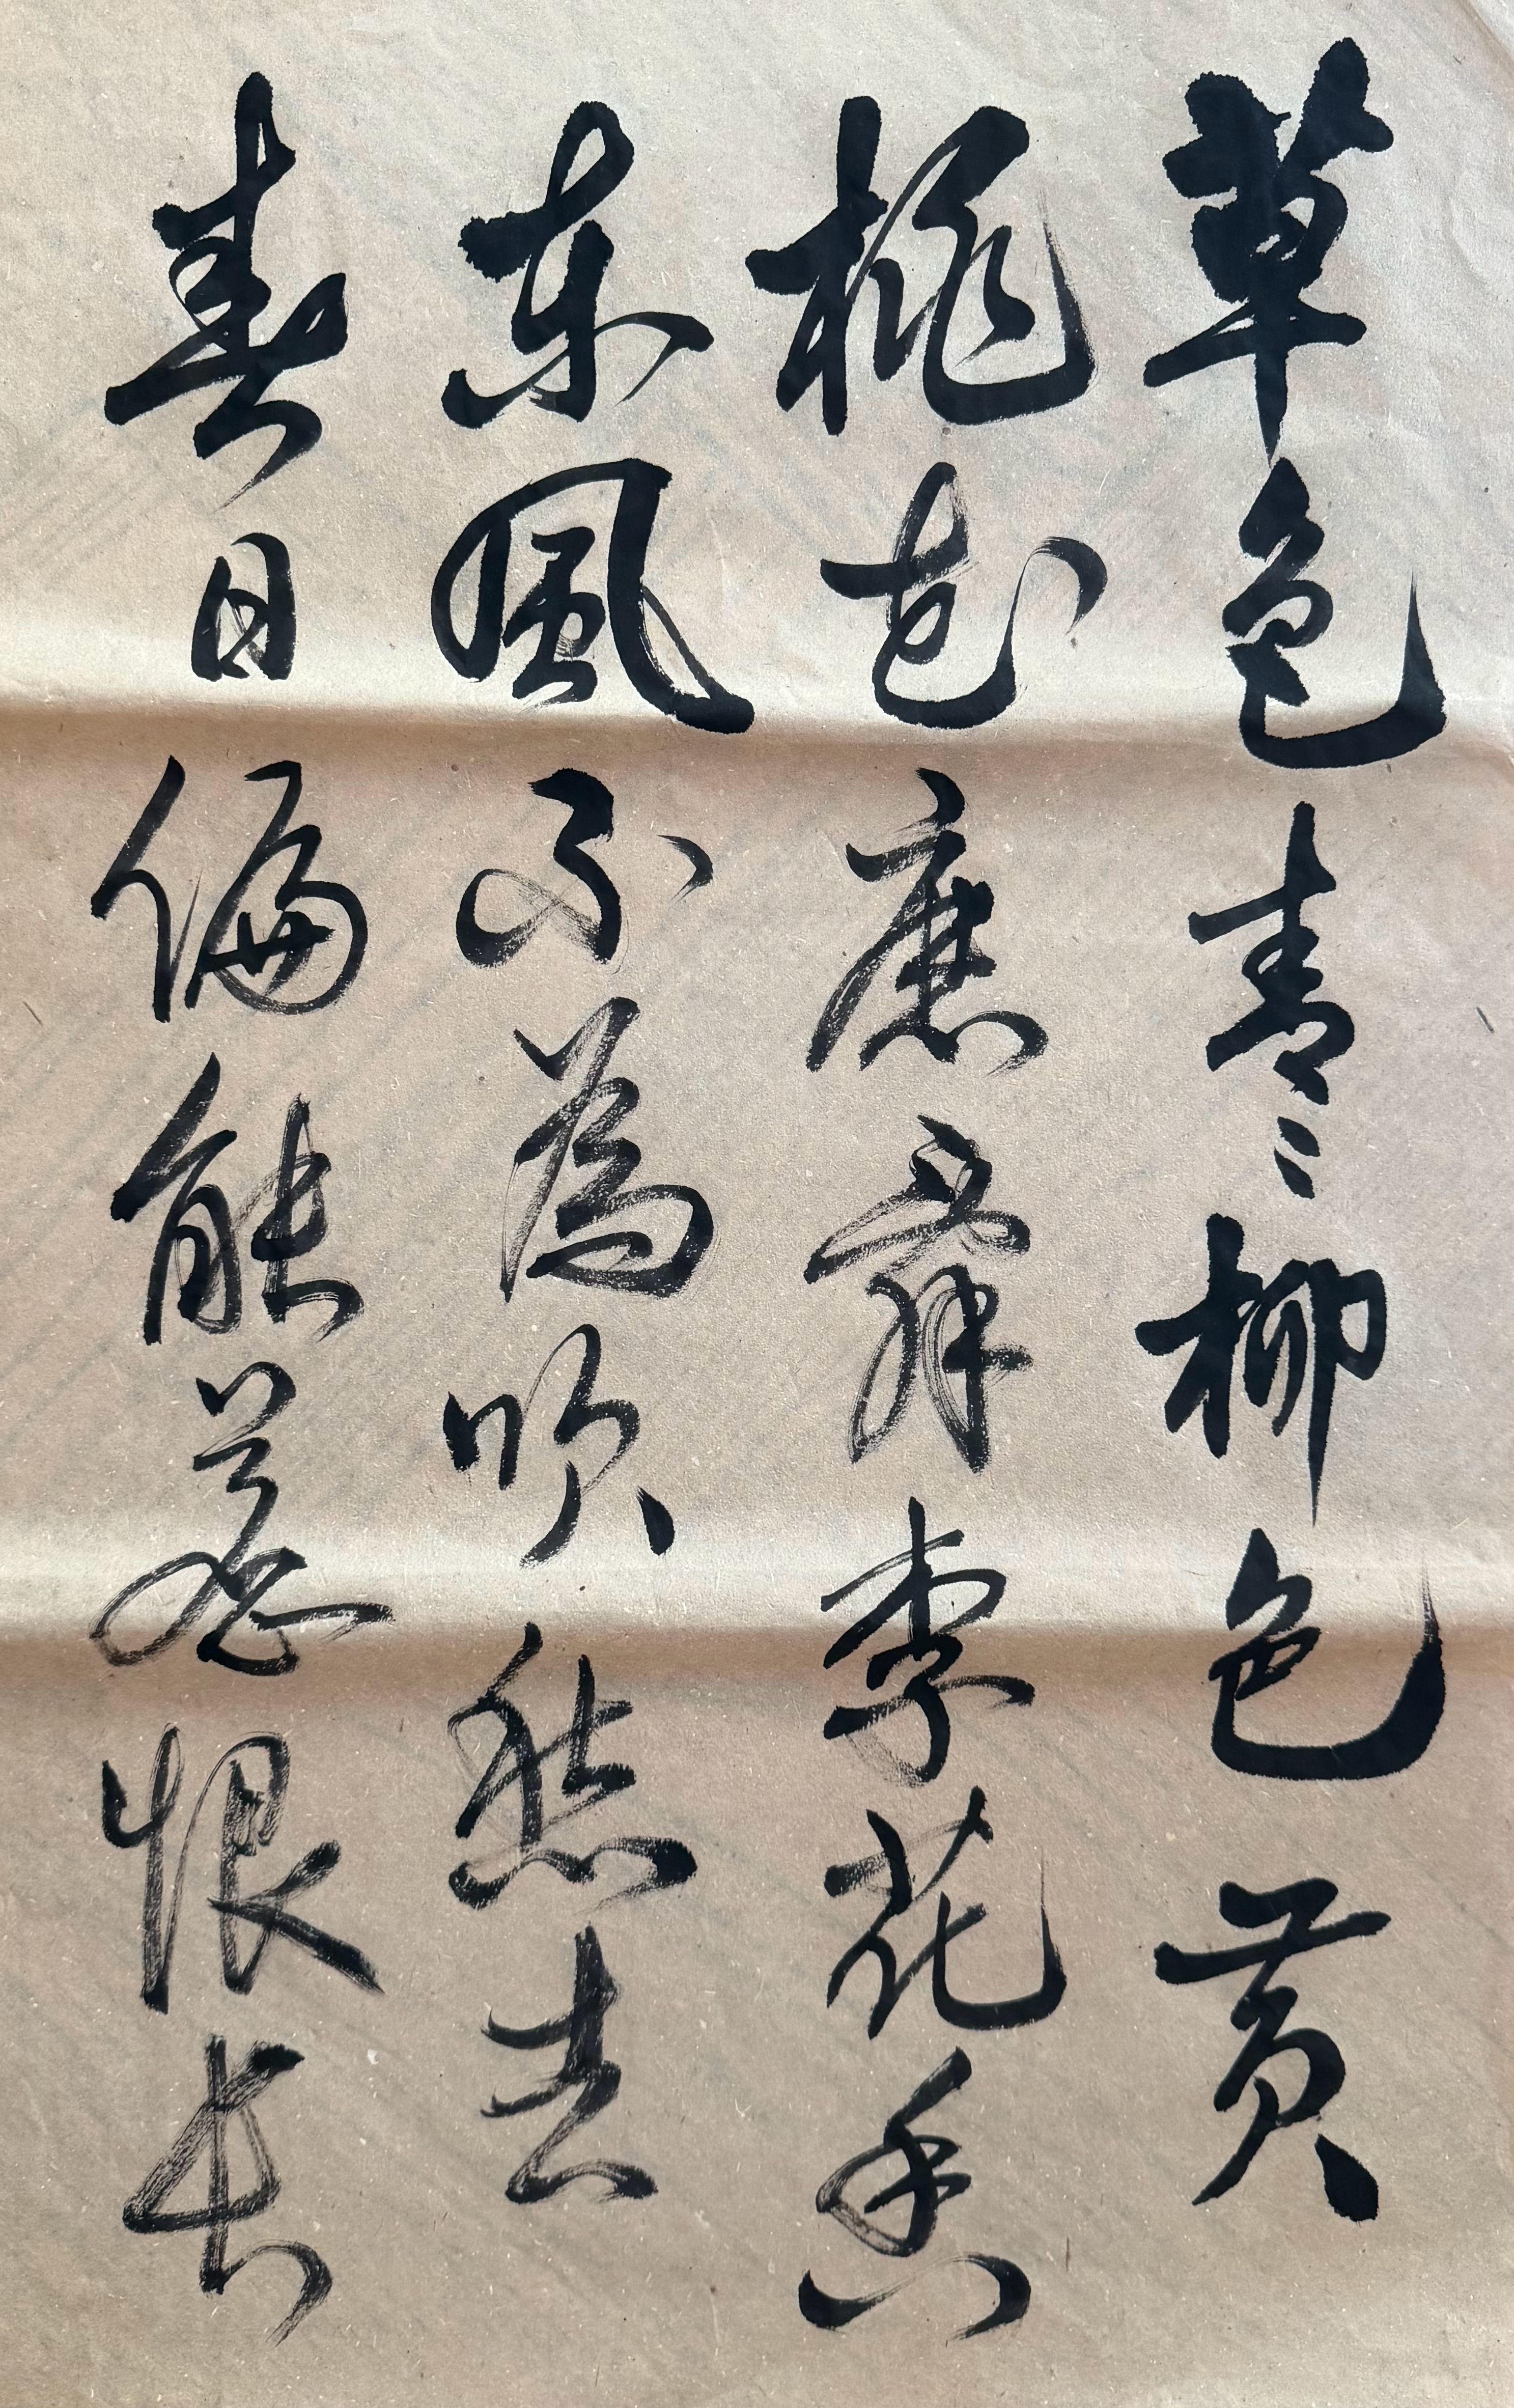 草色青々柳色黄
桃花歷亂李花香
東風不為吹愁去
春日偏能惹恨長